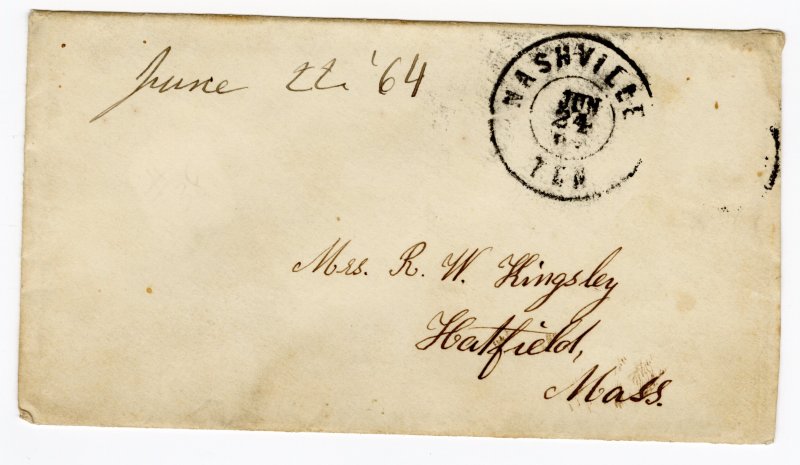 June 22 '64
NASHVILLE
JUN
24
TEN
Mrs. R. W. Kingsley
Hatfield,
Mass.